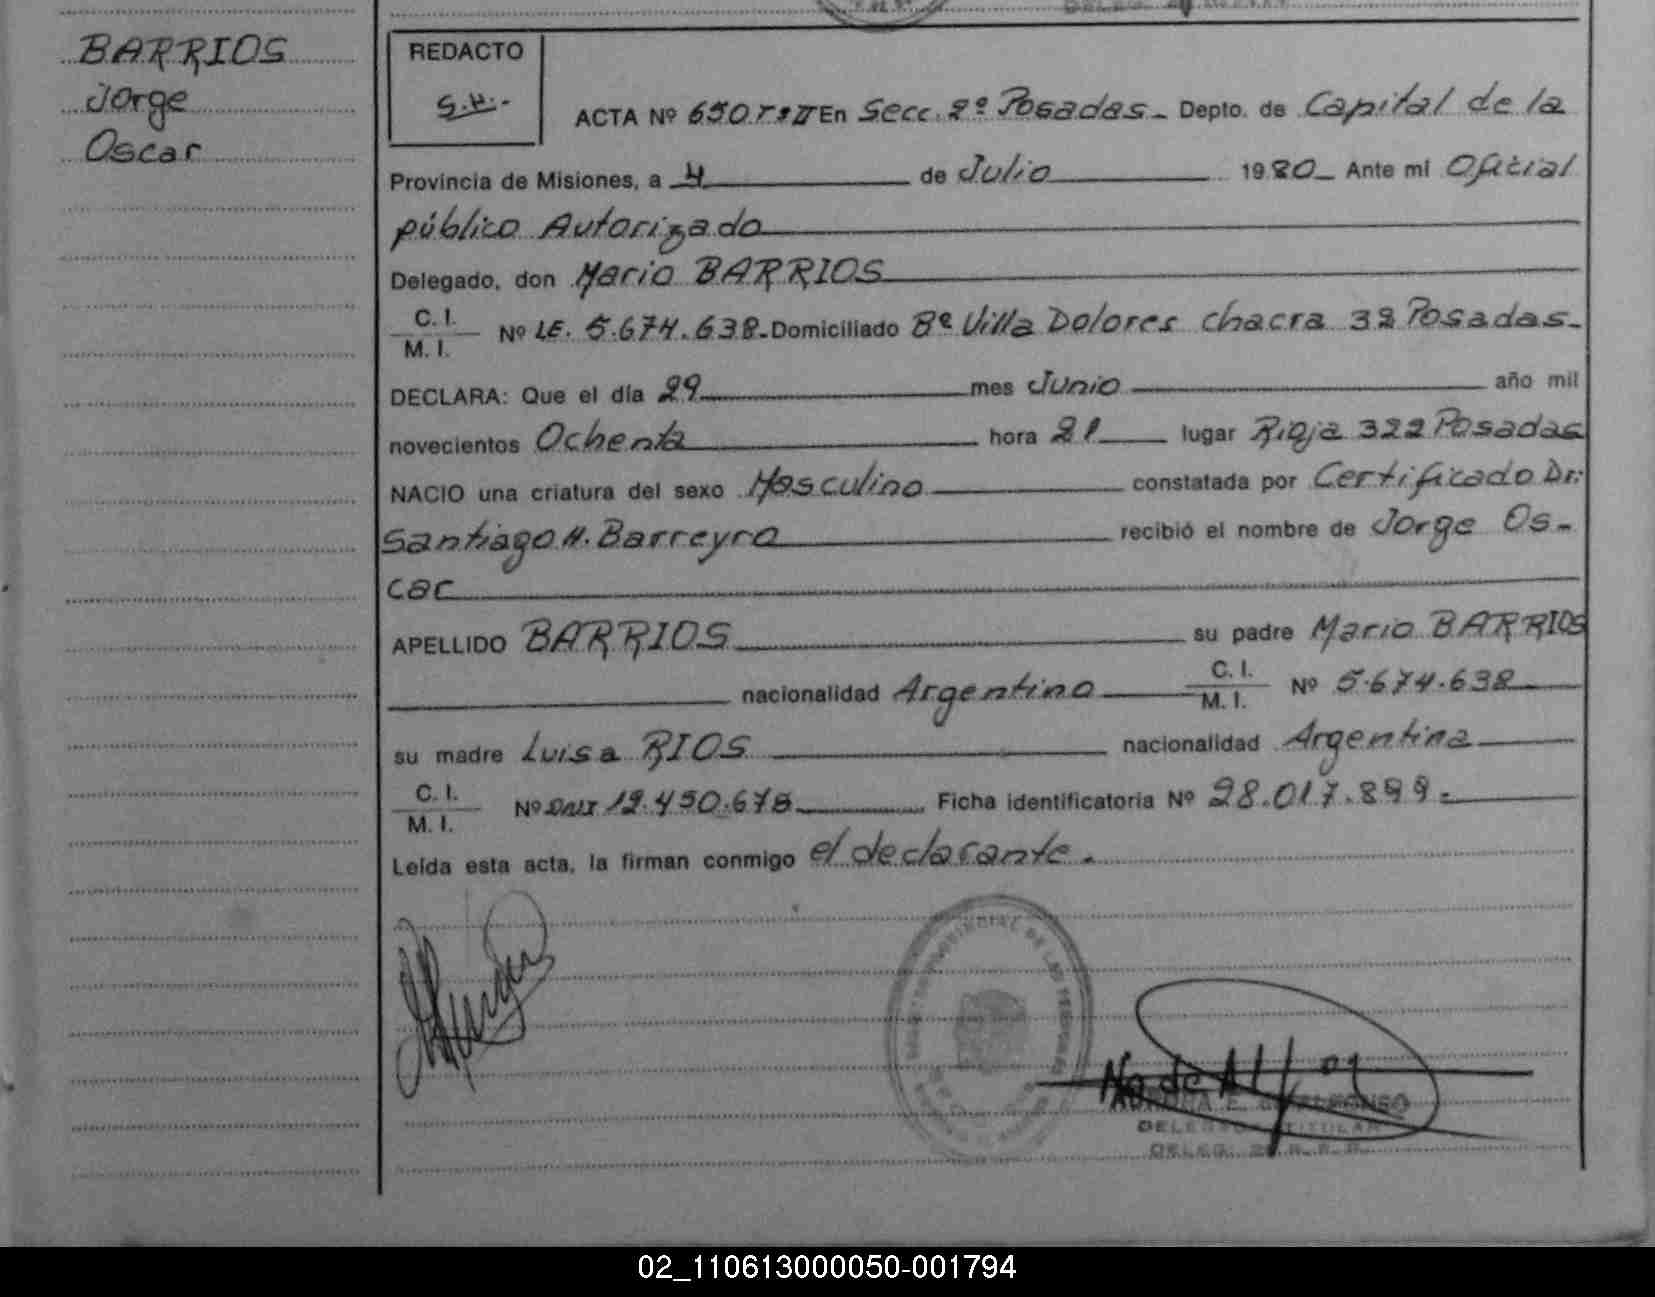 BARRIOS
Jorge
Oscar
REDACTO
S.H.-
ACTA Nº 650 Tº II En Secc. 2º Posadas - Depto. de Capital de la
Provincia de Misiones, a 4 de Julio 1980 - Ante mi Oficial
público Autorizado
Delegado, don Mario BARRIOS
C. I.
M. I. Nº LE. 5.674.638 - Domiciliado Bº Villa Dolores chacra 32 Posadas -
DECLARA: Que el día 29 mes Junio año mil
novecientos Ochenta hora 21 lugar Rioja 322 Posadas
NACIO una criatura del sexo Masculino constatada por Certificado Dr:
Santiago H. Barreyro recibió el nombre de Jorge Os-
car
APELLIDO BARRIOS su padre Mario BARRIOS
nacionalidad Argentino C. I. M. I. Nº 5.674.638
su madre Luisa RIOS nacionalidad Argentina
C. I.
M. I. Nº DNI 12.450.678 Ficha identificatoria Nº 28.017.899 -
Leída esta acta, la firman conmigo el declarante.
DELEG. 2º
02_110613000050-001794